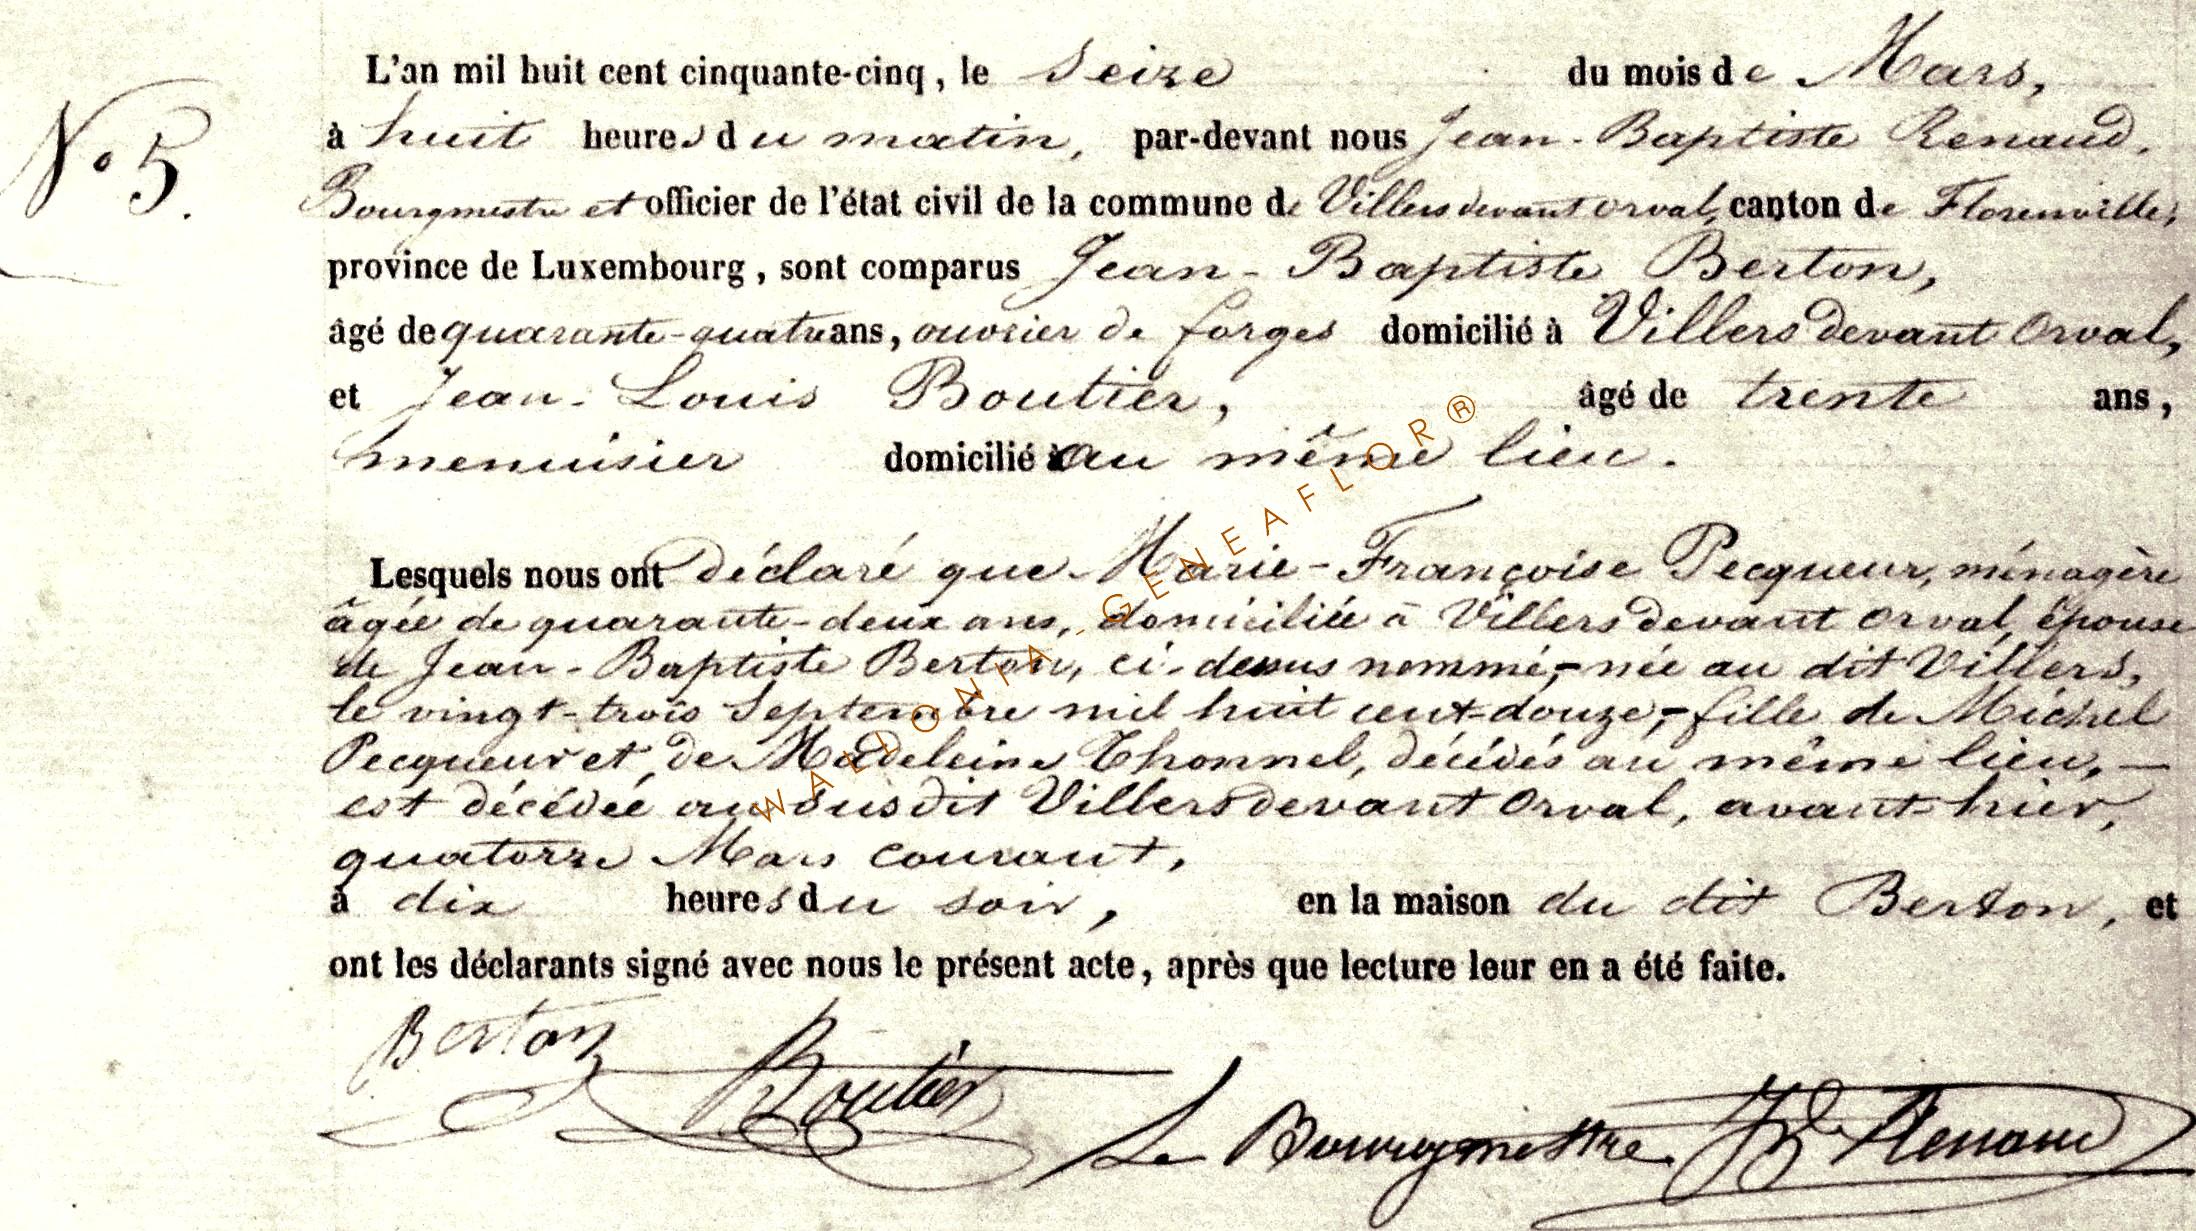 L'an mil huit cent cinquante-cinq, le Seize du mois de Mars,
N° 5.
à huit heures du matin, par-devant nous Jean-Baptiste Renaud,
Bourgmestre et officier de l'état civil de la commune de Villers devant orval, canton de Florenville,
province de Luxembourg, sont comparus Jean-Baptiste Berton,
âgé de quarante-quatre ans, ouvrier de forges domicilié à Villers devant Orval,
et Jean-Louis Boutier, âgé de trente ans,
menuisier domicilié au même lieu.
Lesquels nous ont déclaré que Marie-Françoise Pecqueur, ménagère
âgée de quarante-deux ans, domiciliée à Villers devant orval, épouse
de Jean-Baptiste Berton, ci-dessus nommé,- née au dit Villers,
le vingt-trois Septembre mil huit cent-douze,- fille de Michel
Pecqueur et de Madeleine Thonnel, décédés au même lieu,—
est décédée au susdit Villers devant Orval, avant-hier,
quatorze Mars courant,
à dix heures du soir, en la maison du dit Berton, et
ont les déclarants signé avec nous le présent acte, après que lecture leur en a été faite.
Berton
Boutier
Le Bourgmestre JB Renaud
WALLONIA_GENEAFLOR®